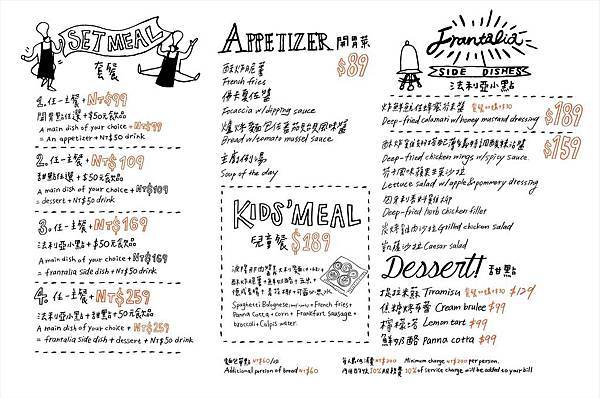 SET MEAL
套餐
1. 任一主餐 + NT$99
開胃點任選 + $50元飲品
A main dish of your choice + NT$99
= An appetizer + NT$50 drink
2. 任一主餐 + NT$109
甜點任選 + $50元飲品
A main dish of your choice + NT$109
= dessert + NT$50 drink
3. 任一主餐 + NT$169
法利亞小點 + $50元飲品
A main dish of your choice + NT$169
= frantalia side dish + NT$50 drink
4. 任一主餐 + NT$259
法利亞小點 + 甜點 + 50元飲品
A main dish of your choice + NT$259
= frantalia side dish + dessert + NT$50 drink
APPETIZER 開胃菜
$89
酥炸脆薯
French fries
佛卡夏佐醬
Focaccia w/dipping sauce
Bread w/tomato mussel sauce
主廚例湯
Soup of the day
KIDS' MEAL
兒童餐 $189
Spaghetti Bolognese (mini size) + French fries +
Panna Cotta + corn + Frankfurt sausage +
broccoli + Calpis water.
Frantalia
SIDE DISHES
法利亞小點
炸鮮魷佐蜂蜜芥末醬
$189
Deep-fried calamati w/honey mustard dressing
$159
Deep-fried chicken wings w/spicy sauce
Lettuce salad w/apple & pommery dressing
Deep-fried herb chicken filler
炭烤雞肉沙拉 Grilled chicken salad
凱薩沙拉 Caesar salad
Dessert! 甜點
提拉米蘇 Tiramisu $129
焦糖烤布蕾 Cream brulee $99
檸檬塔 Lemon tart $99
鮮奶酪 Panna cotta $99
Additional portion of bread NT$60
每人低消費 NT$200 Minimum charge NT$200 per person.
10% of service charge will be added to your bill